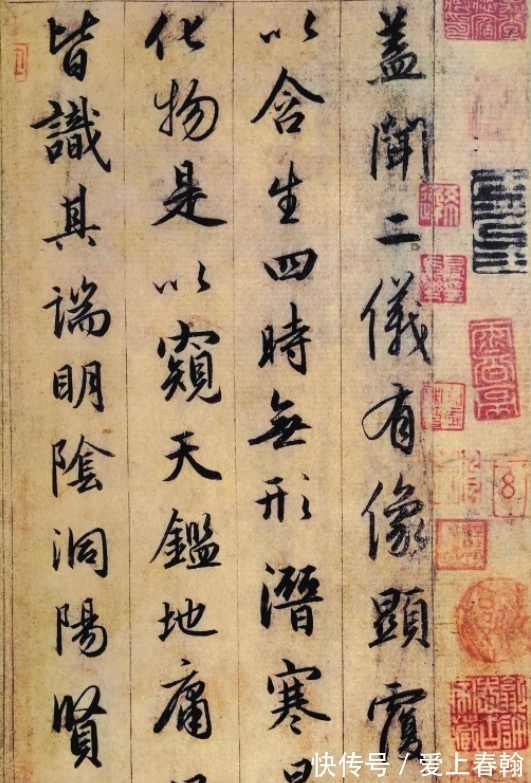 盖聞二儀有像顯覆
以含生四時無形潛寒
化物是以窺天鑑地庸
皆識其端明陰洞陽賢
快传号 / 爱上春翰